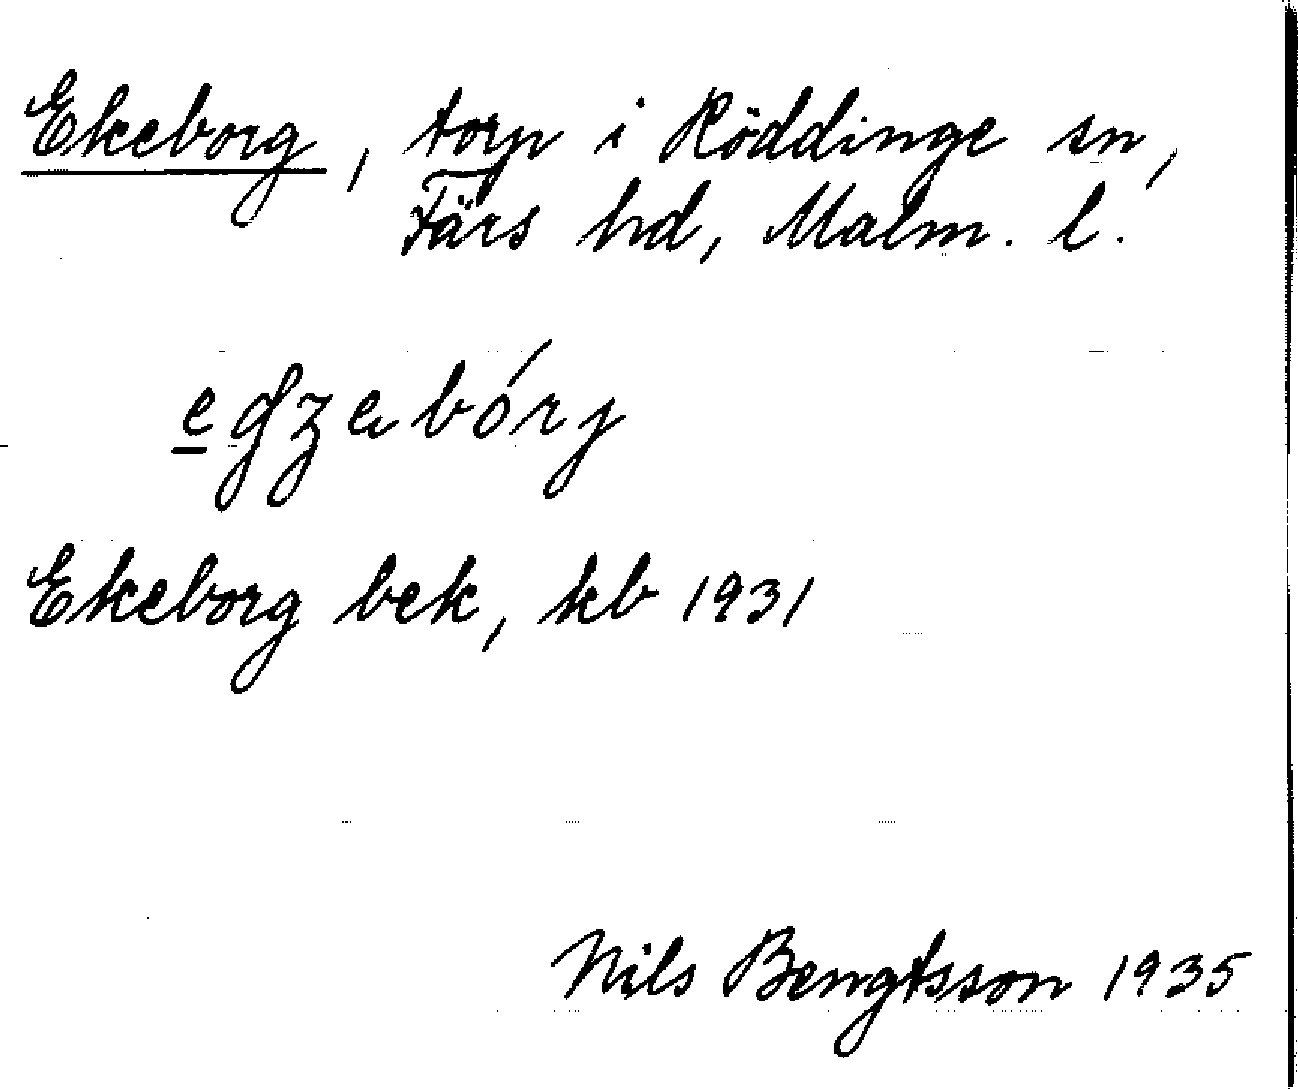 Ekeborg, torp i Röddinge sn,
Färs hd, Malm. l.
Ekeborg bek, kb 1931
Nils Bengtsson 1935